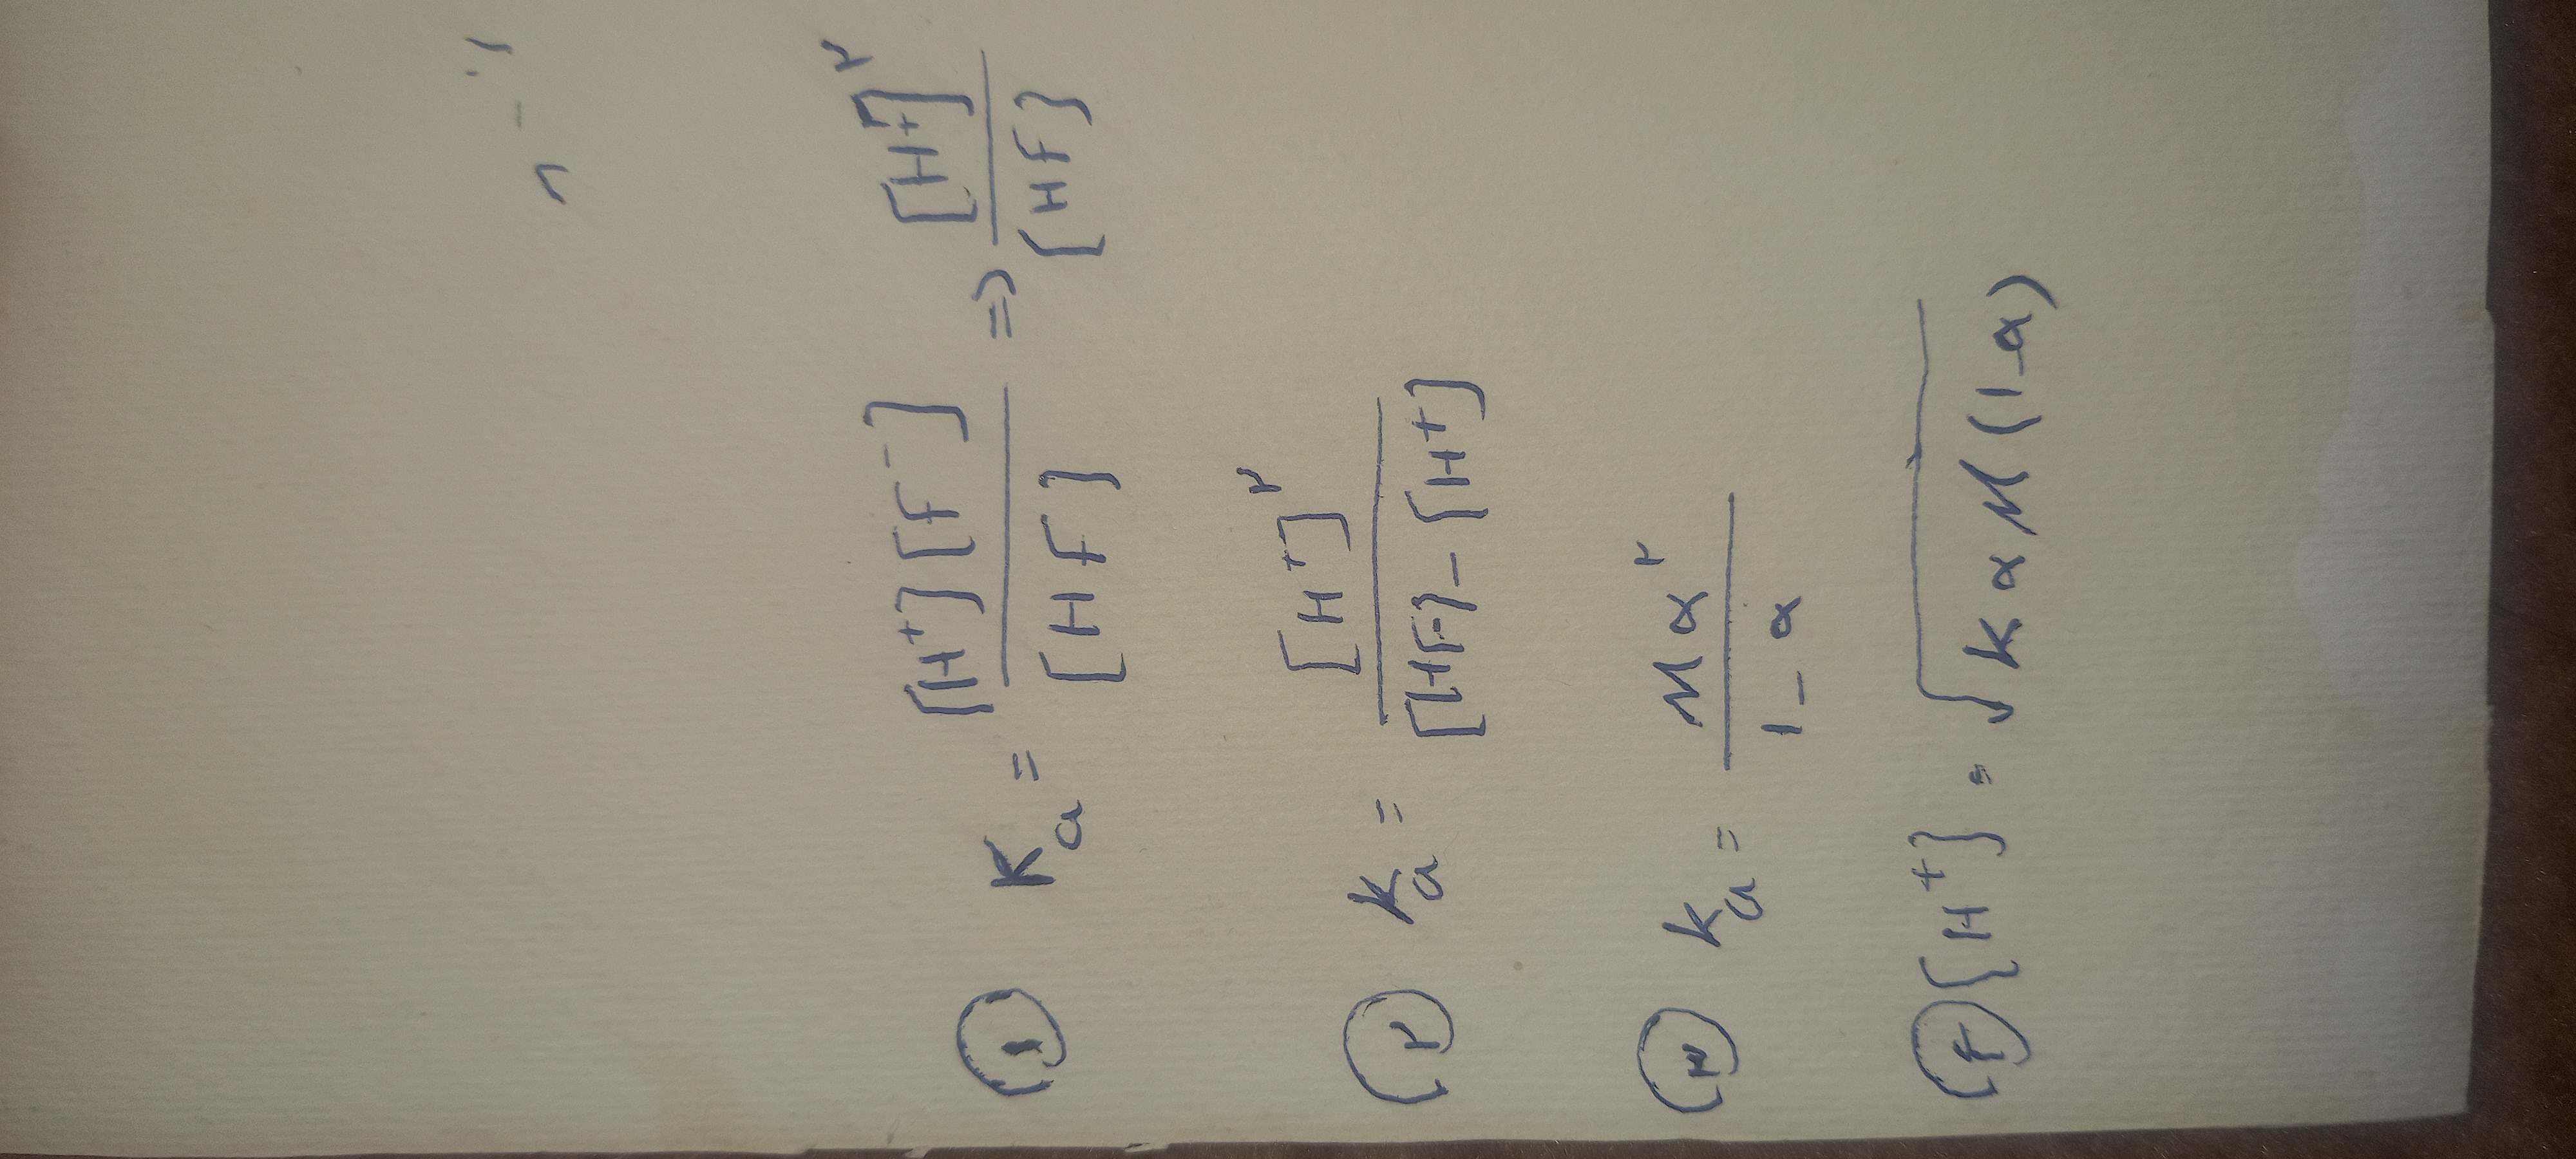 ① Ka = [H⁺][F⁻] / [HF] ⇒ [H⁺]² / [HF]
② Ka = [H⁺]² / [HF] - [H⁺]
③ Ka = Mα² / 1-α
④ [H⁺] = √K α M (1-α)